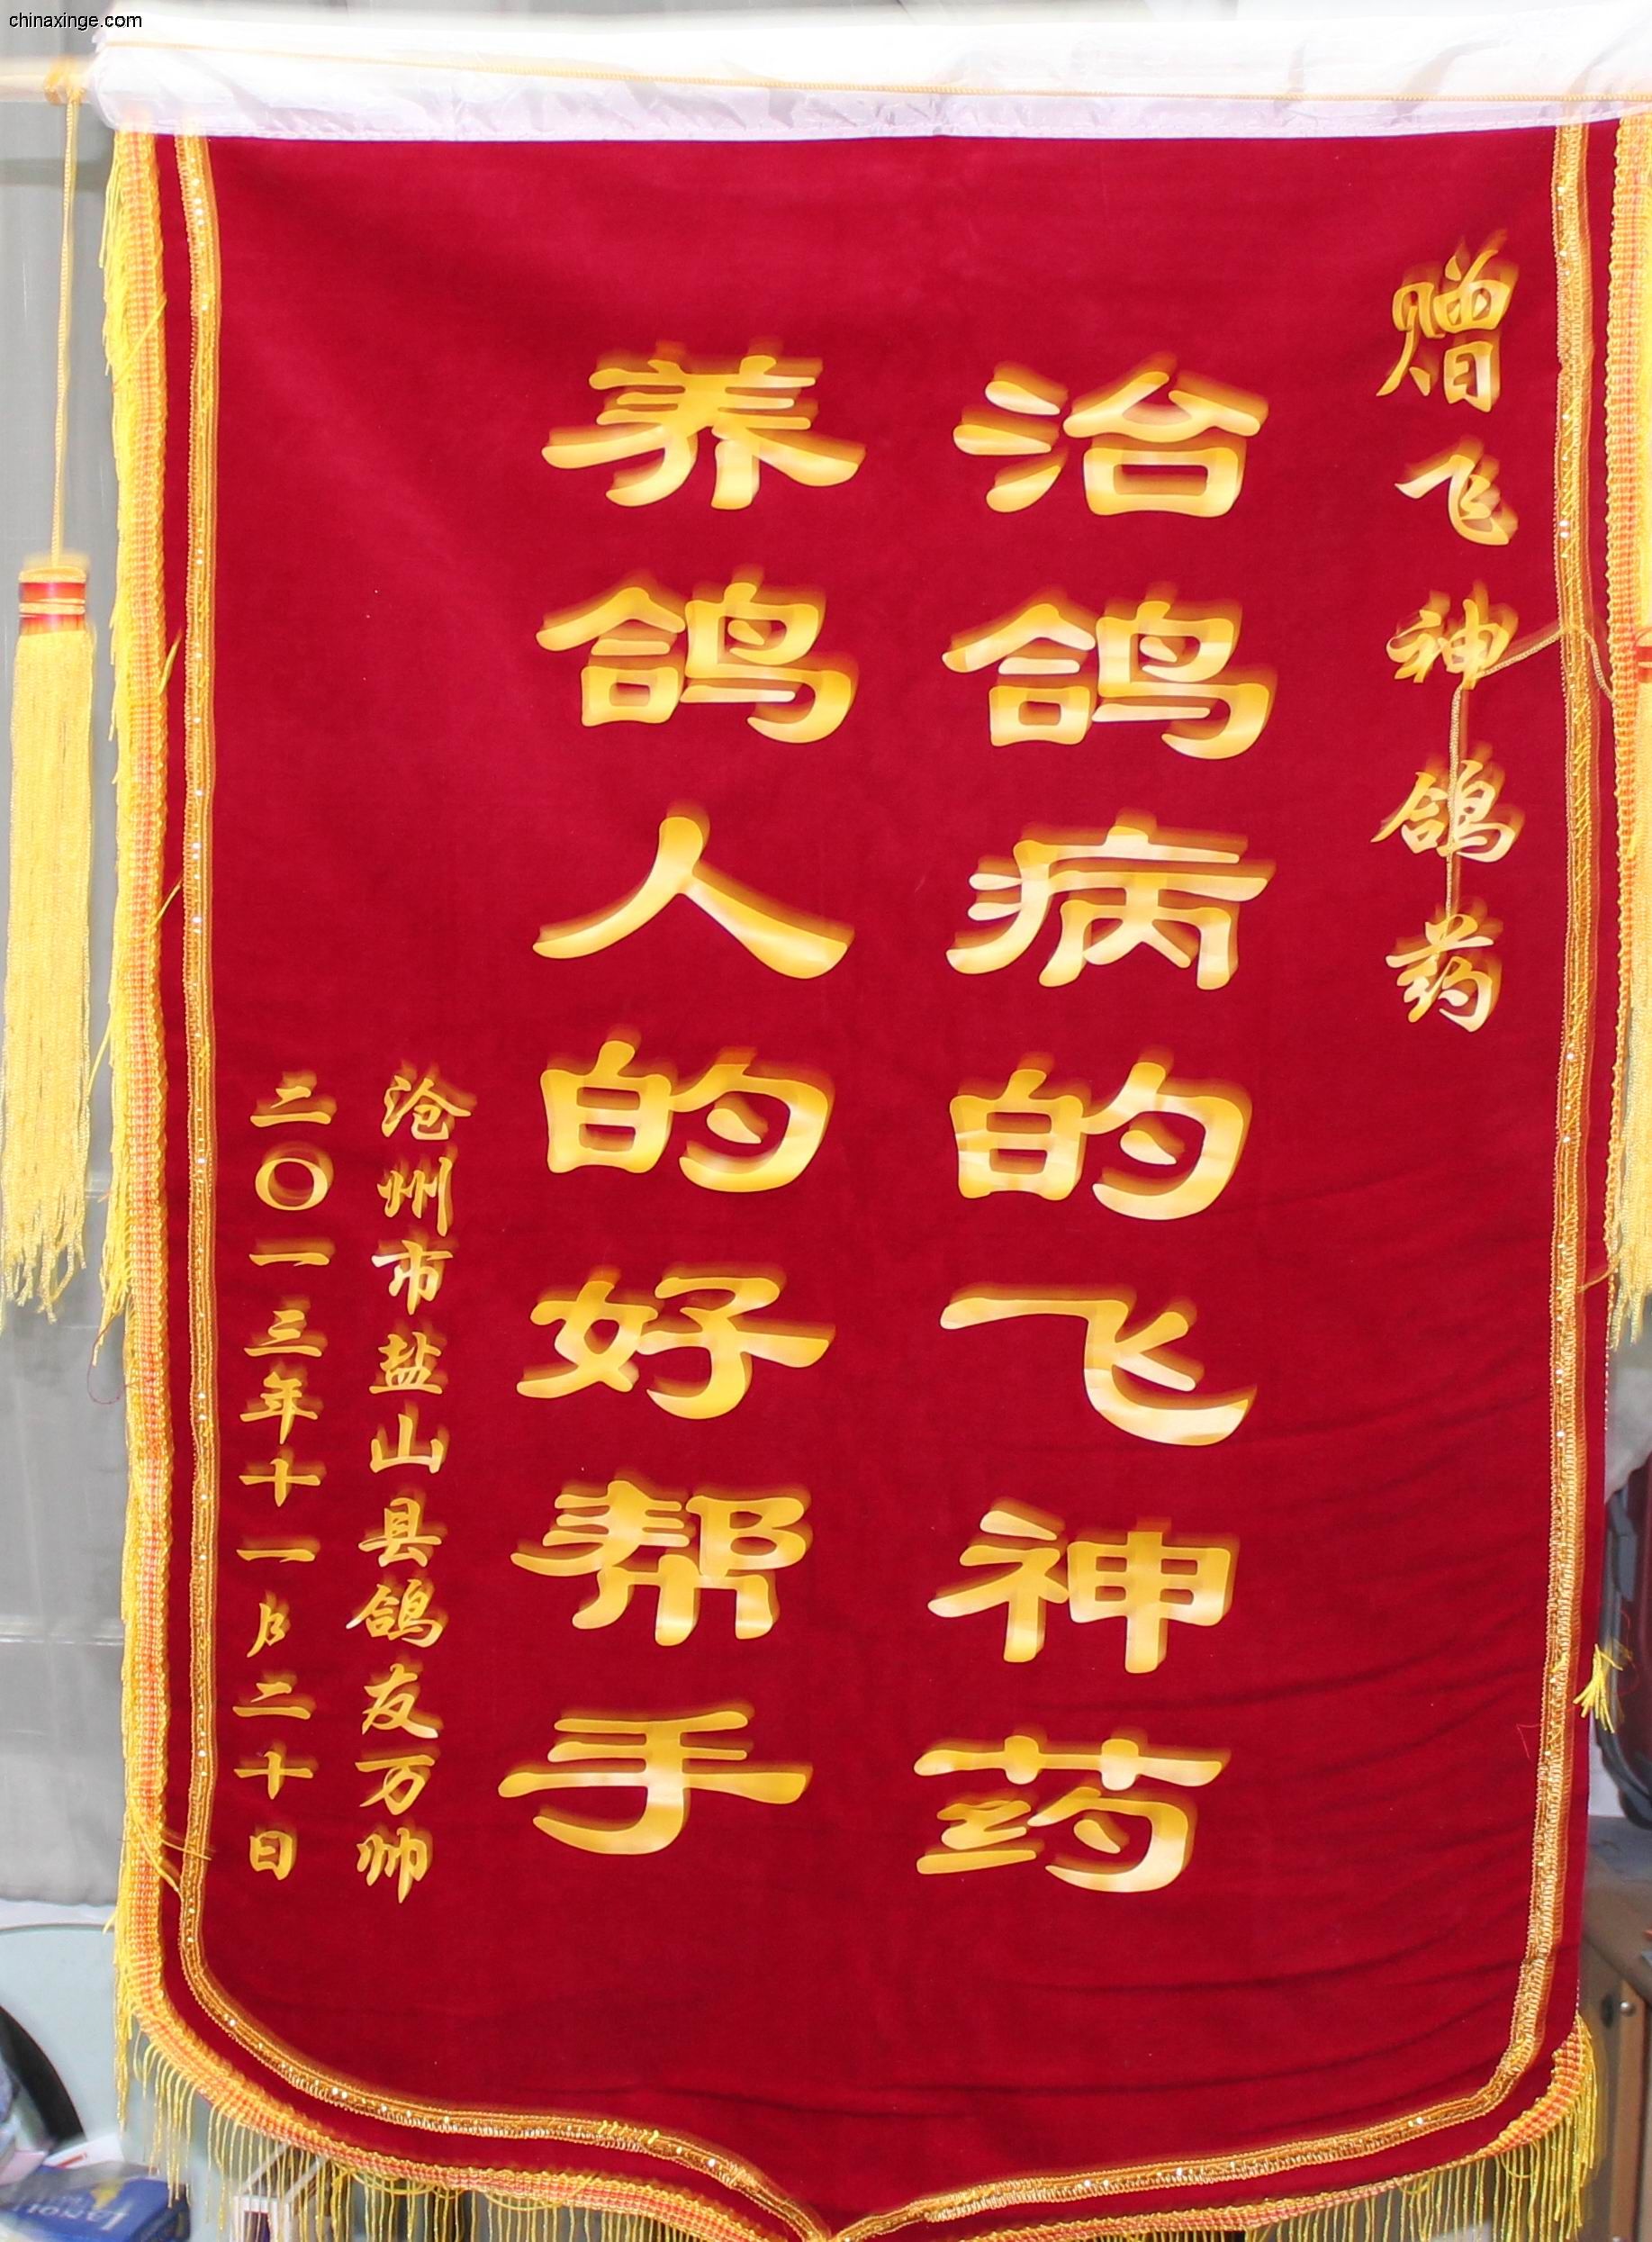 chinaxinge.com
赠飞神鸽药
治鸽病的飞神药
养鸽人的好帮手
沧州市盐山县鸽友万帅
二〇一三年十一月二十日